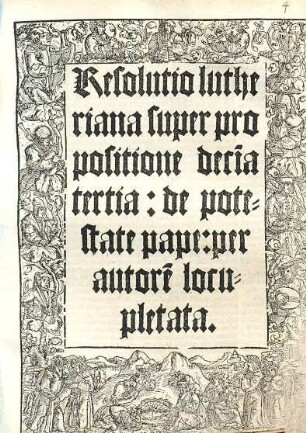 4
Resolutio luthe
riana super pro
positione decīa
tertia : de pote-
state pape: per
autorē locu-
pletata.